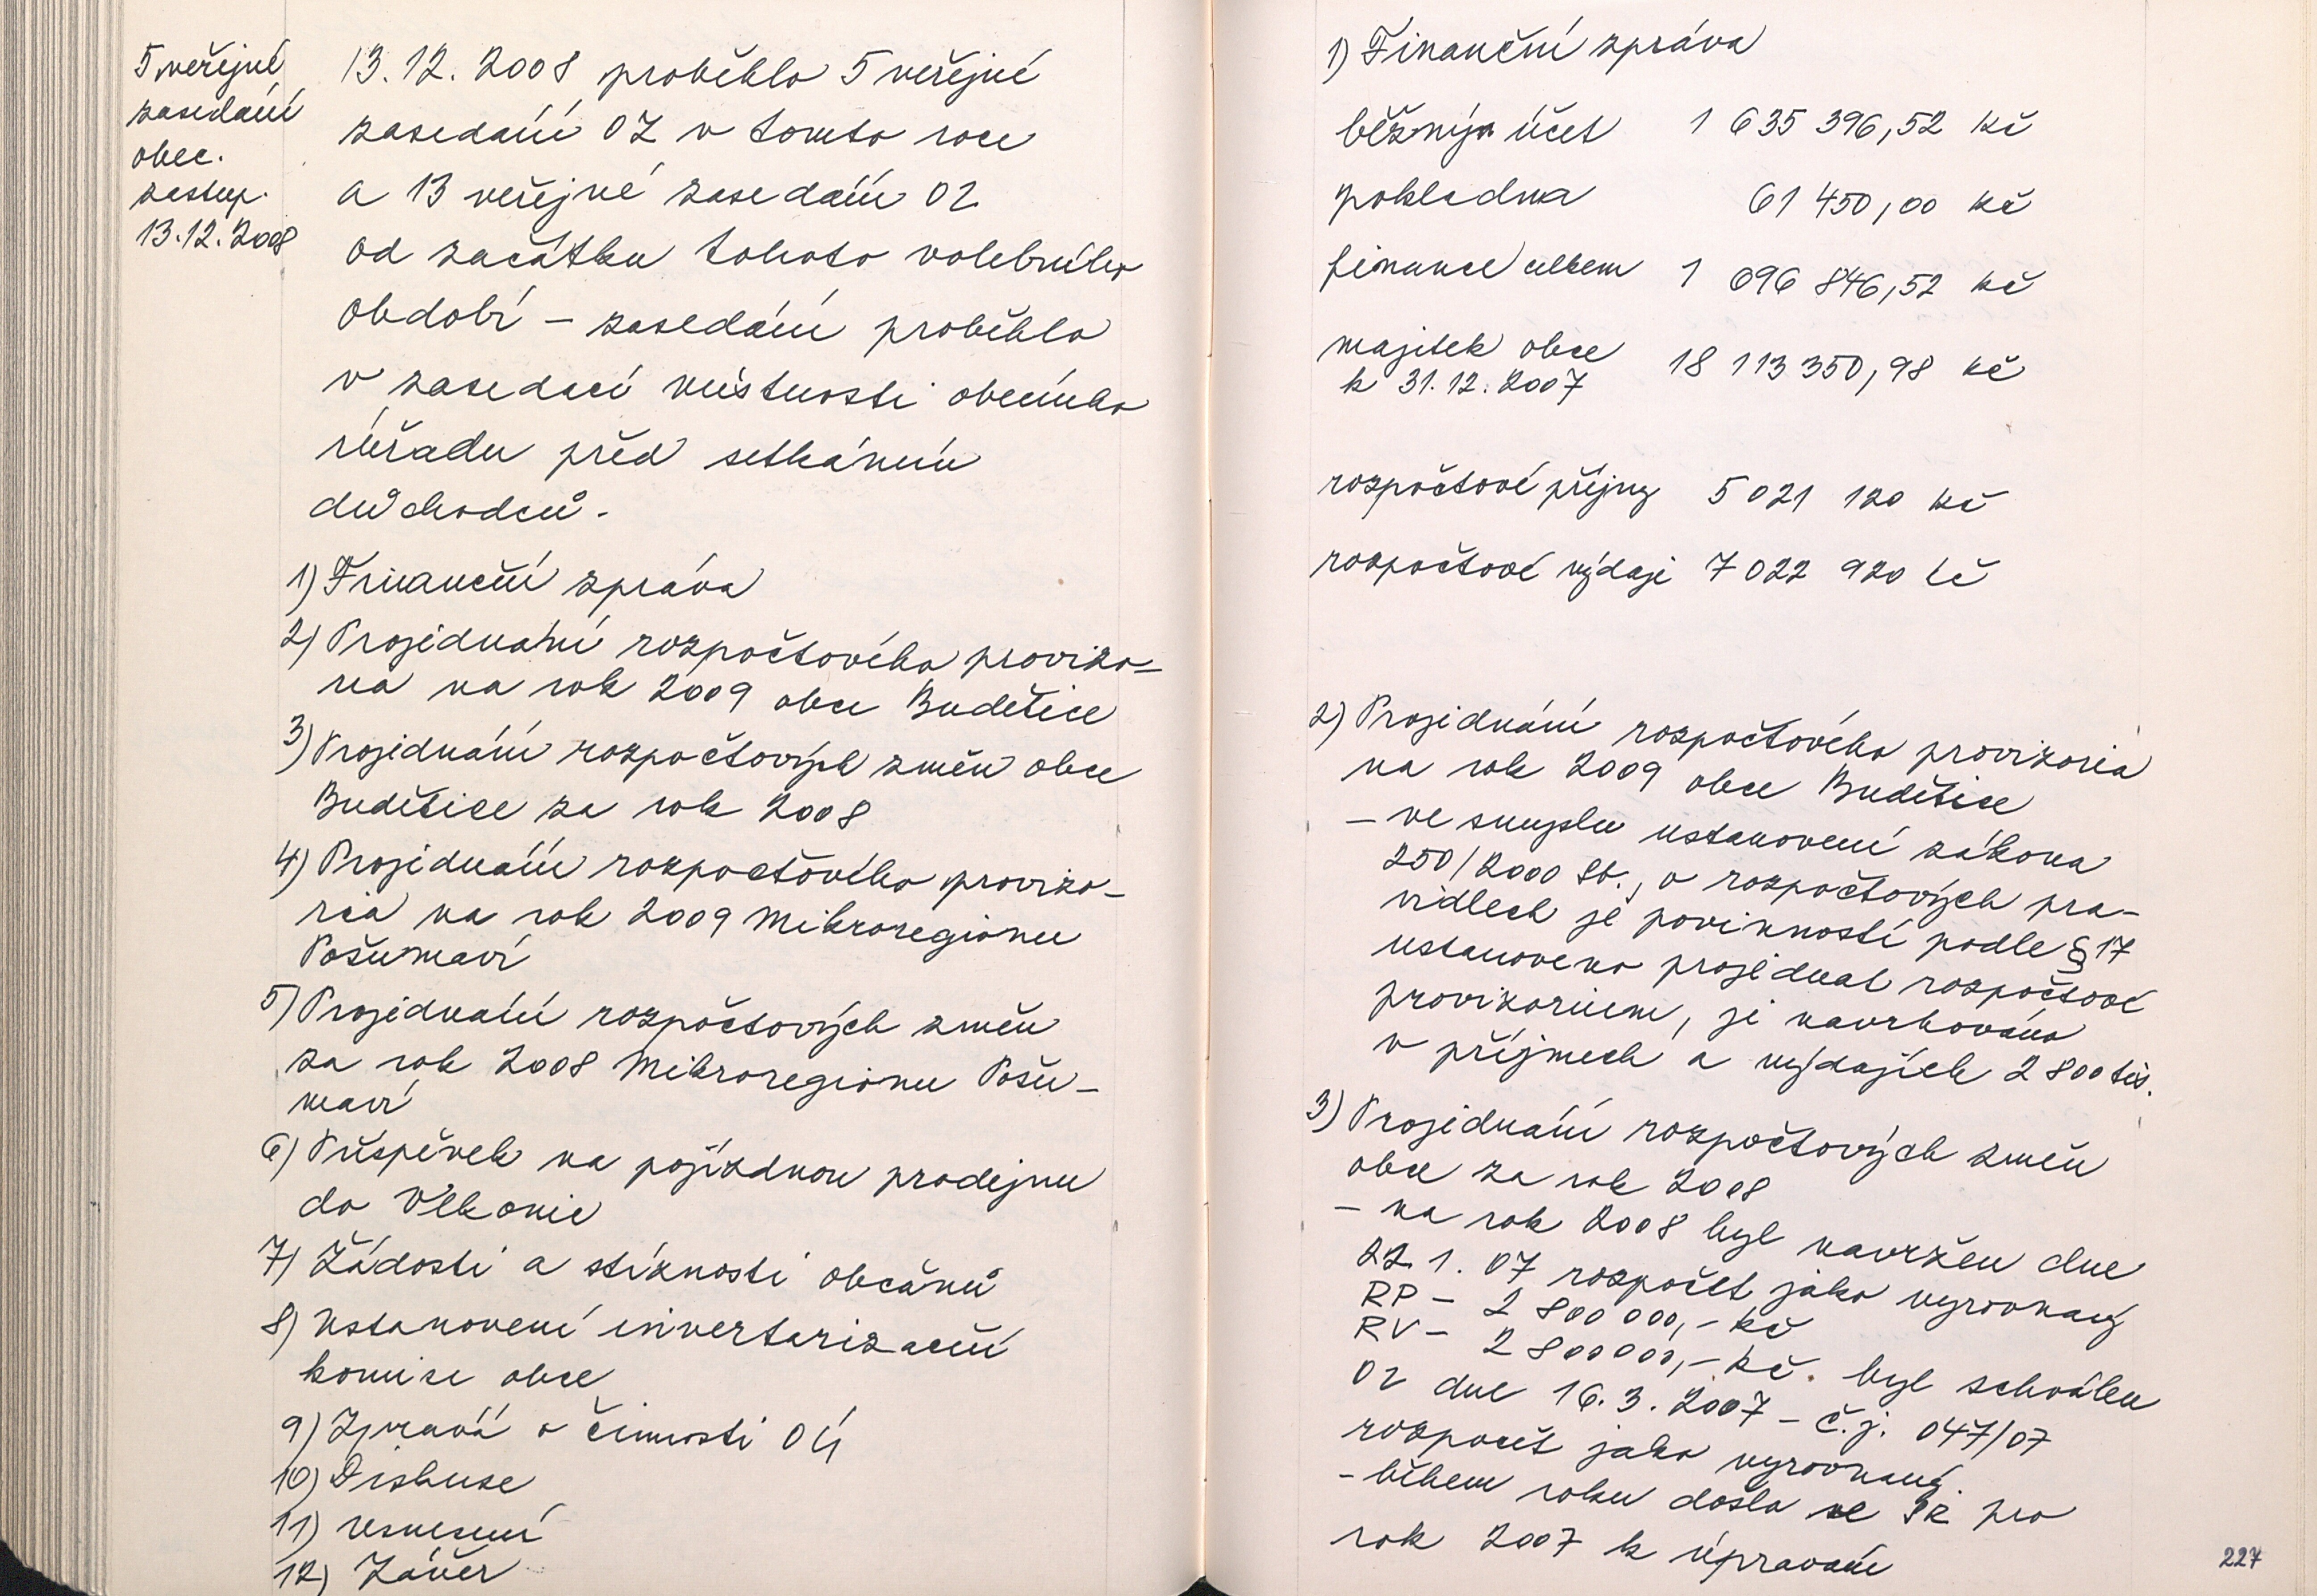 5 veřejné
zasedání
obec.
zastup.
13.12.2008
13.12.2008 proběhlo 5 veřejné
zasedání OZ v tomto roce
a 13 veřejné zasedání OZ
od začátku tohoto volebního
období – zasedání proběhlo
v zasedací místnosti obecního
úřadu před setkáním
důchodců.
1) Finanční zpráva
2) Projednání rozpočtového provizo-
ria na rok 2009 obce Budětice
3) Projednání rozpočtových změn obce
Budětice za rok 2008
4) Projednání rozpočtového provizo-
ria na rok 2009 Mikroregionu
Pošumaví
5) Projednání rozpočtových změn
za rok 2008 Mikroregionu Pošu-
maví
6) Příspěvek na pojízdnou prodejnu
do Vlkonic
7) Žádosti a stížnosti občanů
8) Ustanovení inventarizační
komise obce
9) Zpravá o činnosti OÚ
10) Diskuse
11) Usnesení
12) Závěr
1) Finanční zpráva
běžný účet 1 635 396,52 Kč
pokladna 61 450,00 Kč
finance celkem 1 696 846,52 Kč
majetek obce 18 113 350,98 Kč
k 31.12.2007
rozpočtové příjmy 5 021 120 Kč
rozpočtové výdaje 7 022 920 Kč
2) Projednání rozpočtového provizoria
na rok 2009 obce Budětice
– ve smyslu ustanovení zákona
250/2000 Sb., o rozpočtových pra-
vidlech je povinností podle § 17
ustanoveno projednat rozpočtové
provizorium, je navrhováno
v příjmech a výdajích 2 800 tis.
3) Projednání rozpočtových změn
obce za rok 2008
– na rok 2008 byl navržen dne
22.1.07 rozpočet jako vyrovnaný
RP – 2 800 000,– Kč
RV – 2 800 000,– Kč. byl schválen
OZ dne 16.3.2007 – č.j. 047/07
rozpočet jako vyrovnaný
– během roku došlo ve SR pro
rok 2007 k úpravám
227